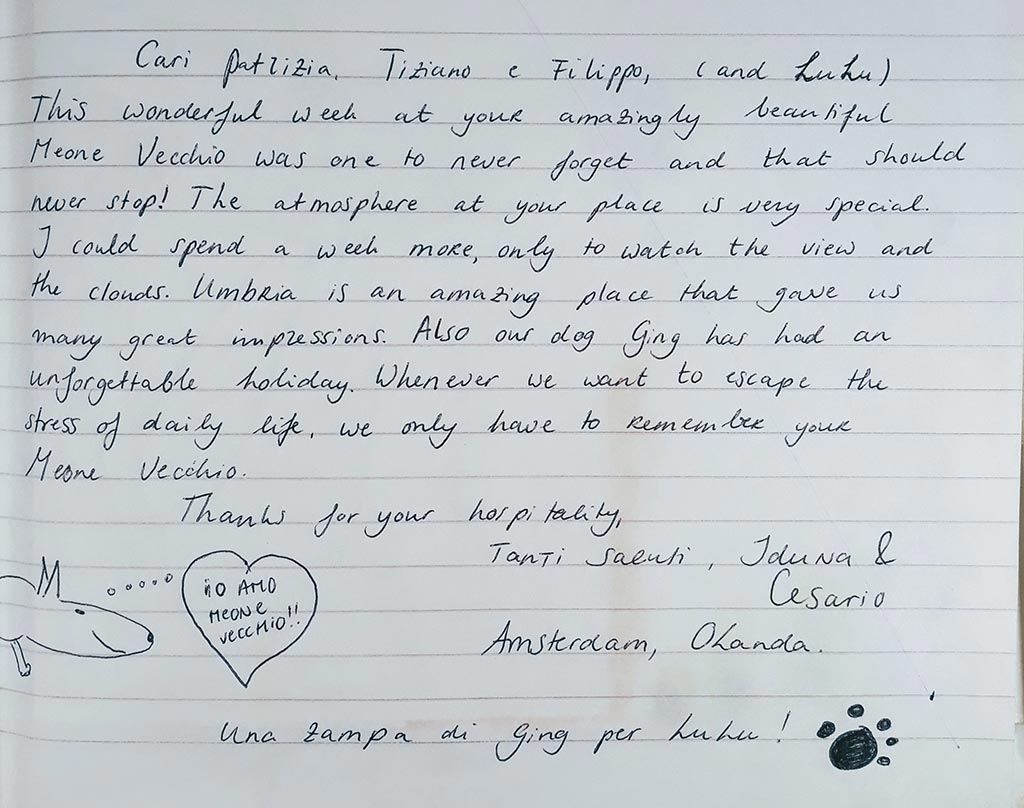 Cari Patrizia, Tiziano e Filippo, (and LuLu)
This wonderful week at your amazingly beautiful
Meone Vecchio was one to never forget and that should
never stop! The atmosphere at your place is very special.
I could spend a week more, only to watch the view and
the clouds. Umbria is an amazing place that gave us
many great impressions. Also our dog Ging has had an
unforgettable holiday. Whenever we want to escape the
stress of daily life, we only have to remember your
Meone Vecchio.
Thanks for your hospitality,
Tanti Saluti, Iduna &
Cesario
Amsterdam, Olanda.
iO AMO
MEONE
VECCHIO!!
Una zampa di Ging per LuLu!